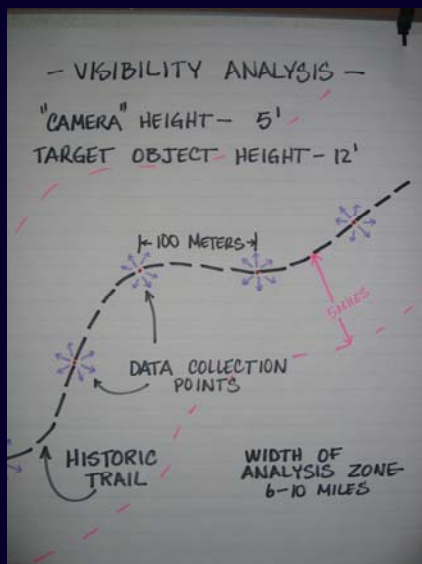 - VISIBILITY ANALYSIS -
"CAMERA" HEIGHT - 5'
TARGET OBJECT HEIGHT - 12'
100 METERS
5 MILES
DATA COLLECTION
POINTS
HISTORIC
TRAIL
WIDTH OF
ANALYSIS ZONE-
6-10 MILES